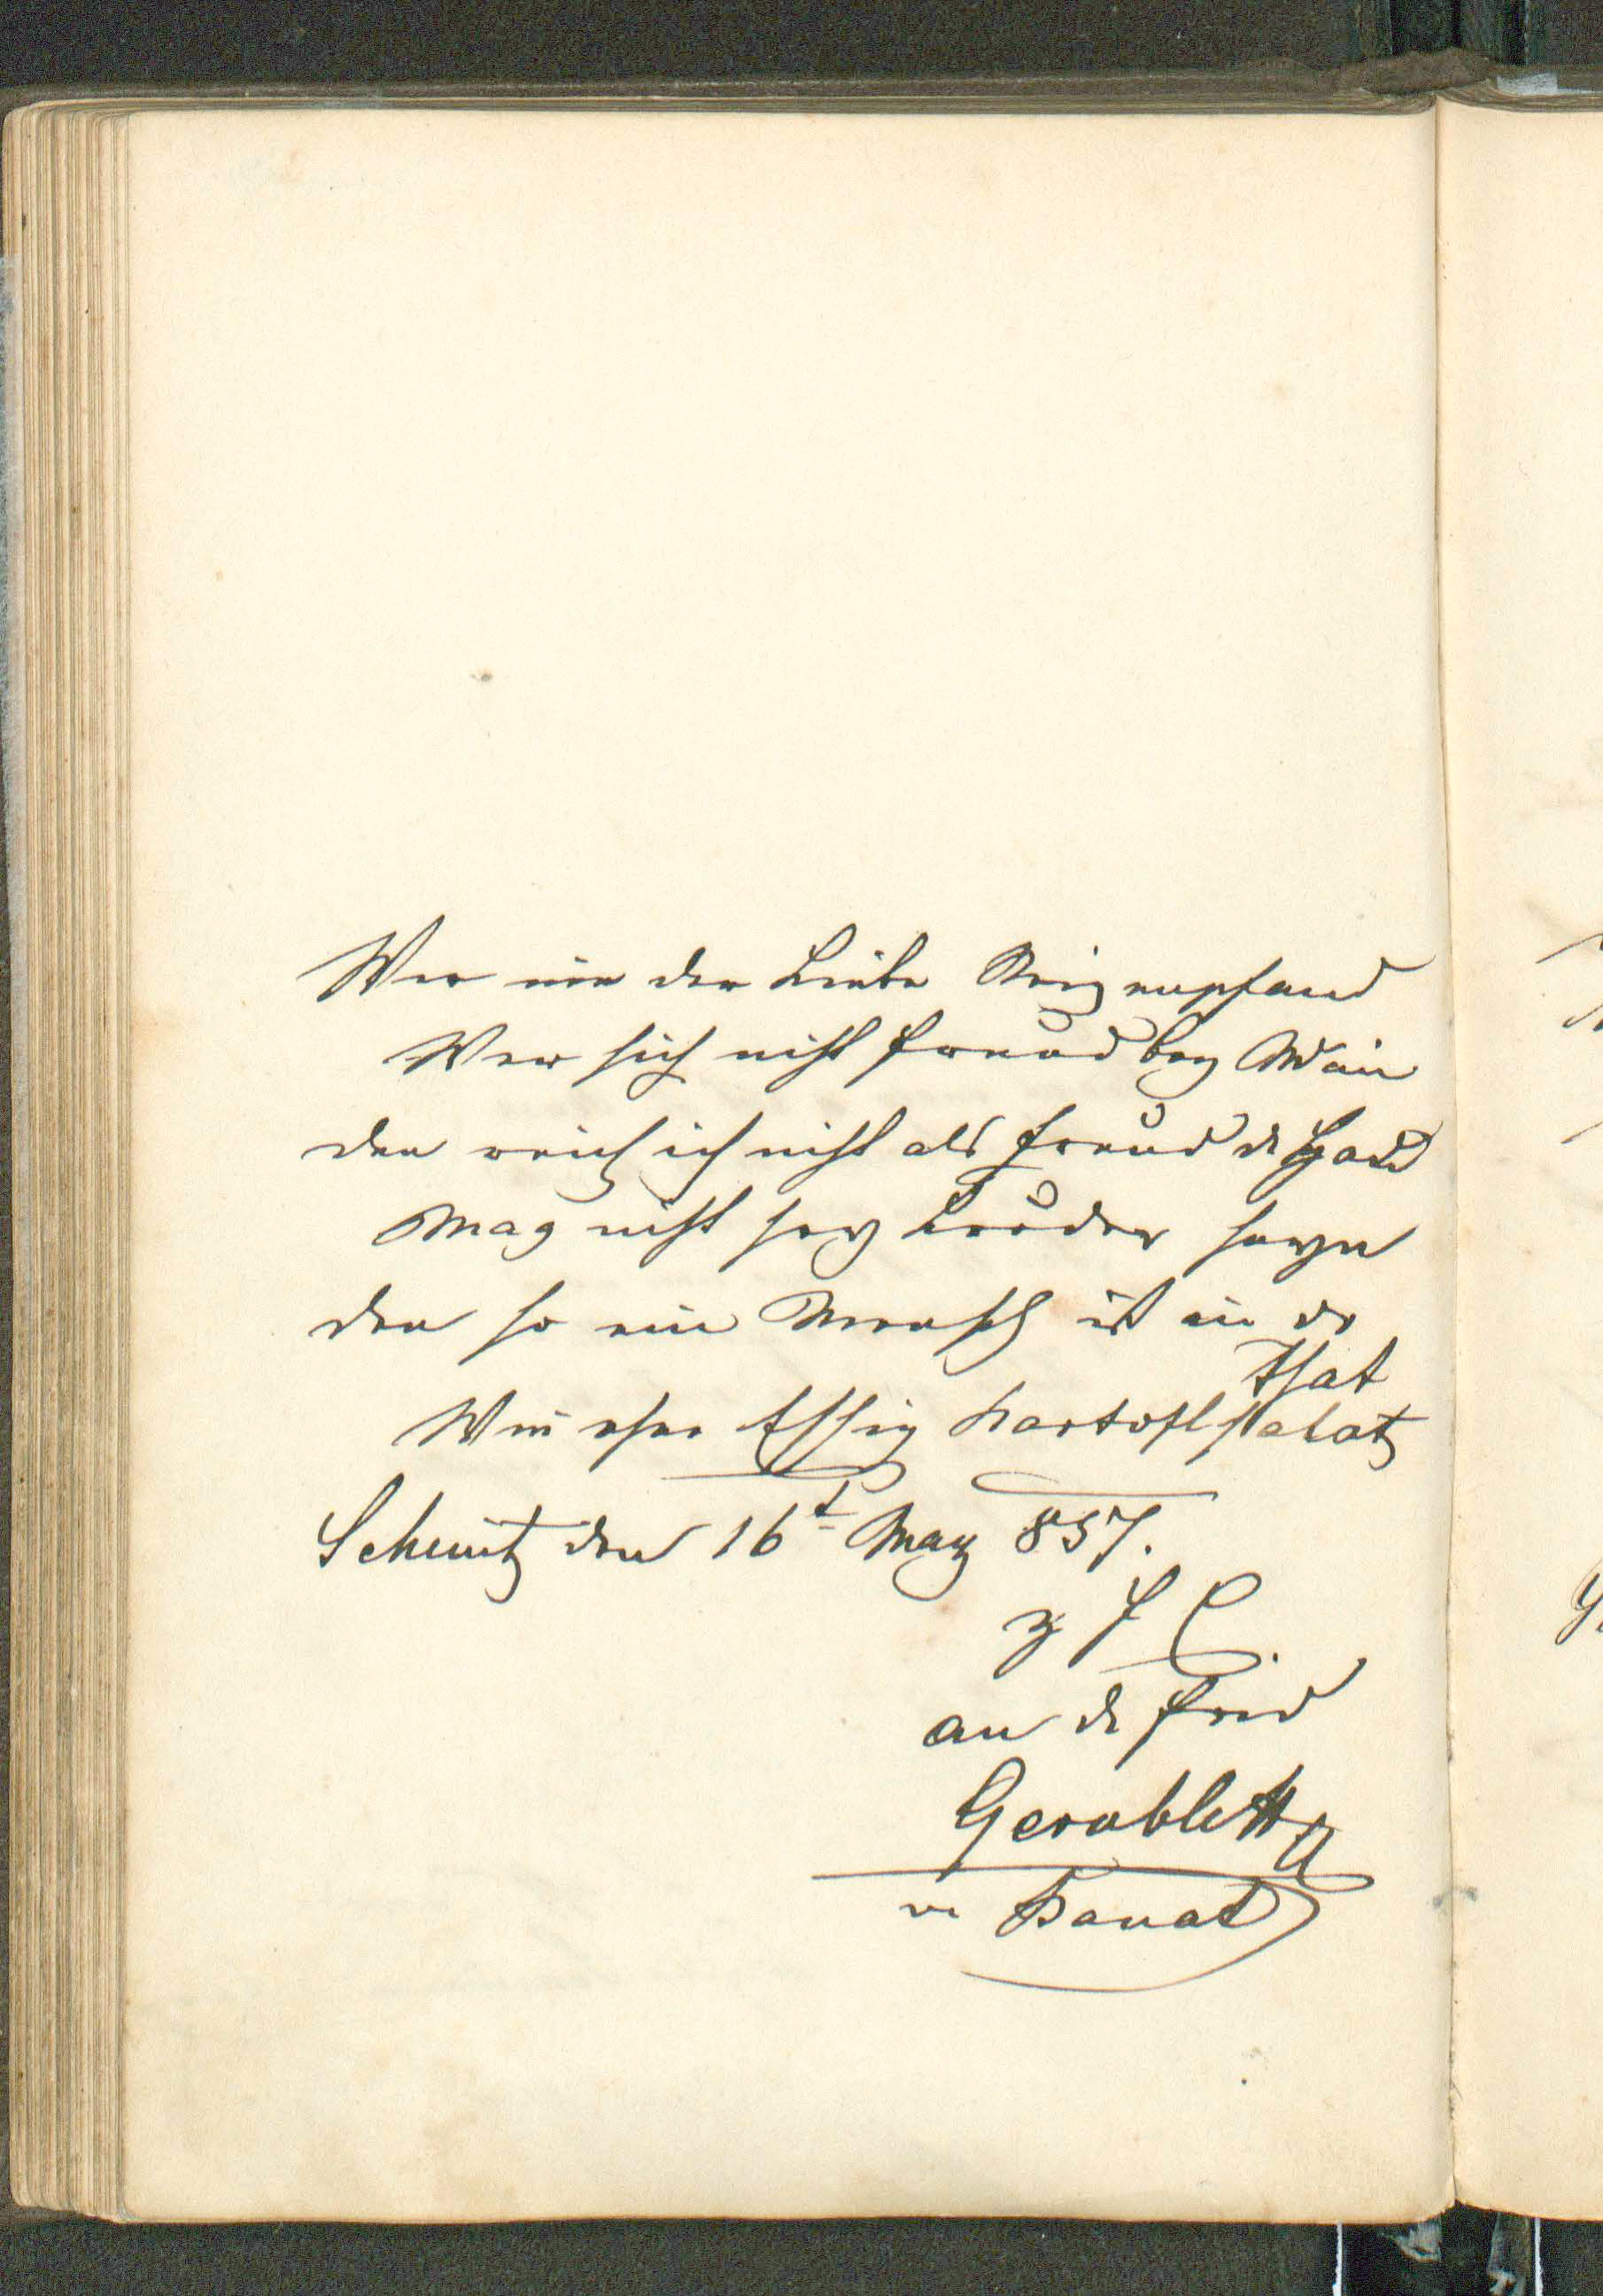 Wer nie der Liebe Reiz empfand
Wer sich nicht freud bey Wein
den reich ich nicht als Freund d Hand
Mag nicht sey Bruder seyn
den so ein Mensch ist in dr
That
Wie ohne Essig Kartoflsalat
Schemitz den 16t May 857.
z f E
an d frid
Gerabletta
Banat